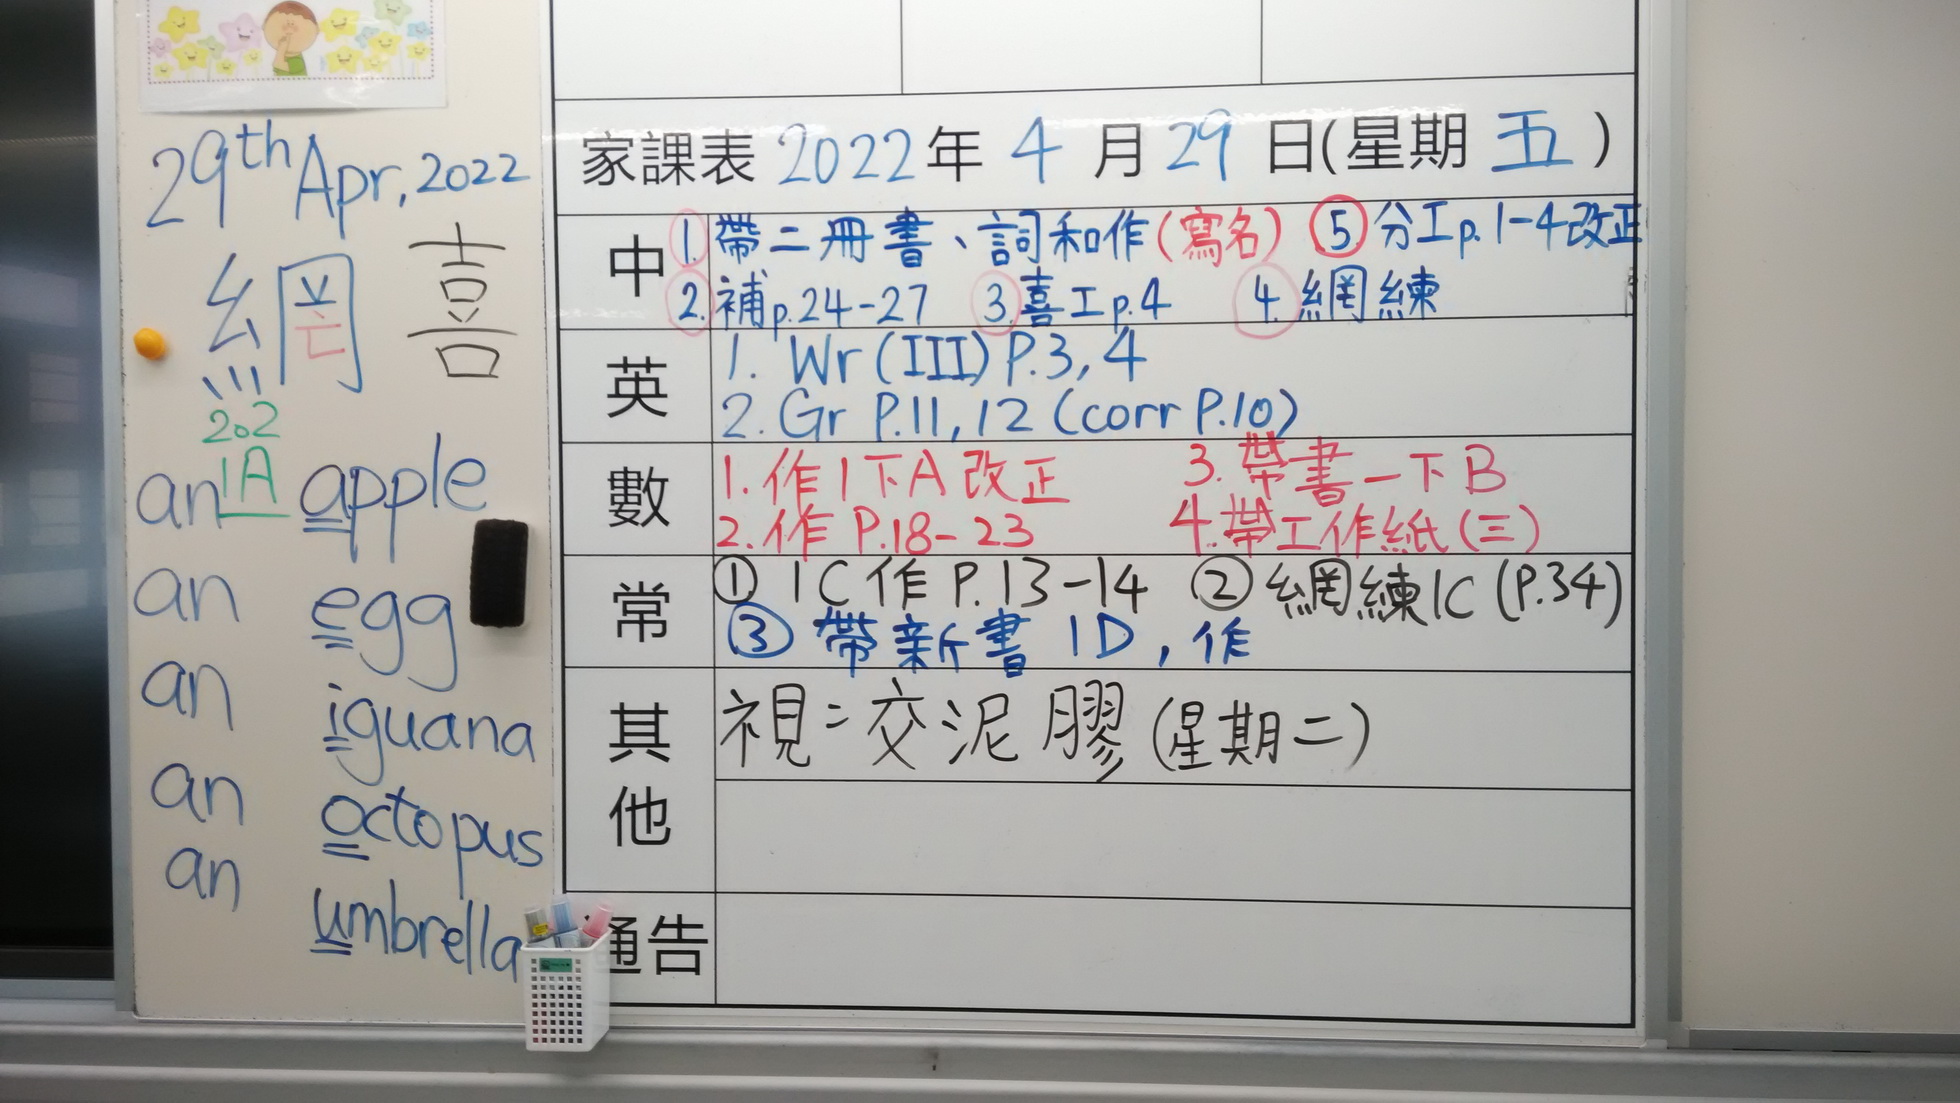 29th Apr, 2022
網 喜
202
1A
an apple
an egg
an iguana
an octopus
an umbrella
家課表 2022年 4 月 29 日(星期 五 )
中
1. 帶二冊書、詞和作(寫名) ⑤ 分工p.1-4改正
2. 補p.24-27 3. 喜工p.4 4. 網練
英
1. Wr (III) P.3, 4
2. Gr P.11, 12 (corr P.10)
數
1. 作1下A改正 3. 帶書一下B
2. 作 P.18-23 4. 帶工作紙(三)
常
① 1C作 P.13-14 ② 網練1C (P.34)
③ 帶新書 1D, 作
其他
視：交泥膠(星期二)
通告